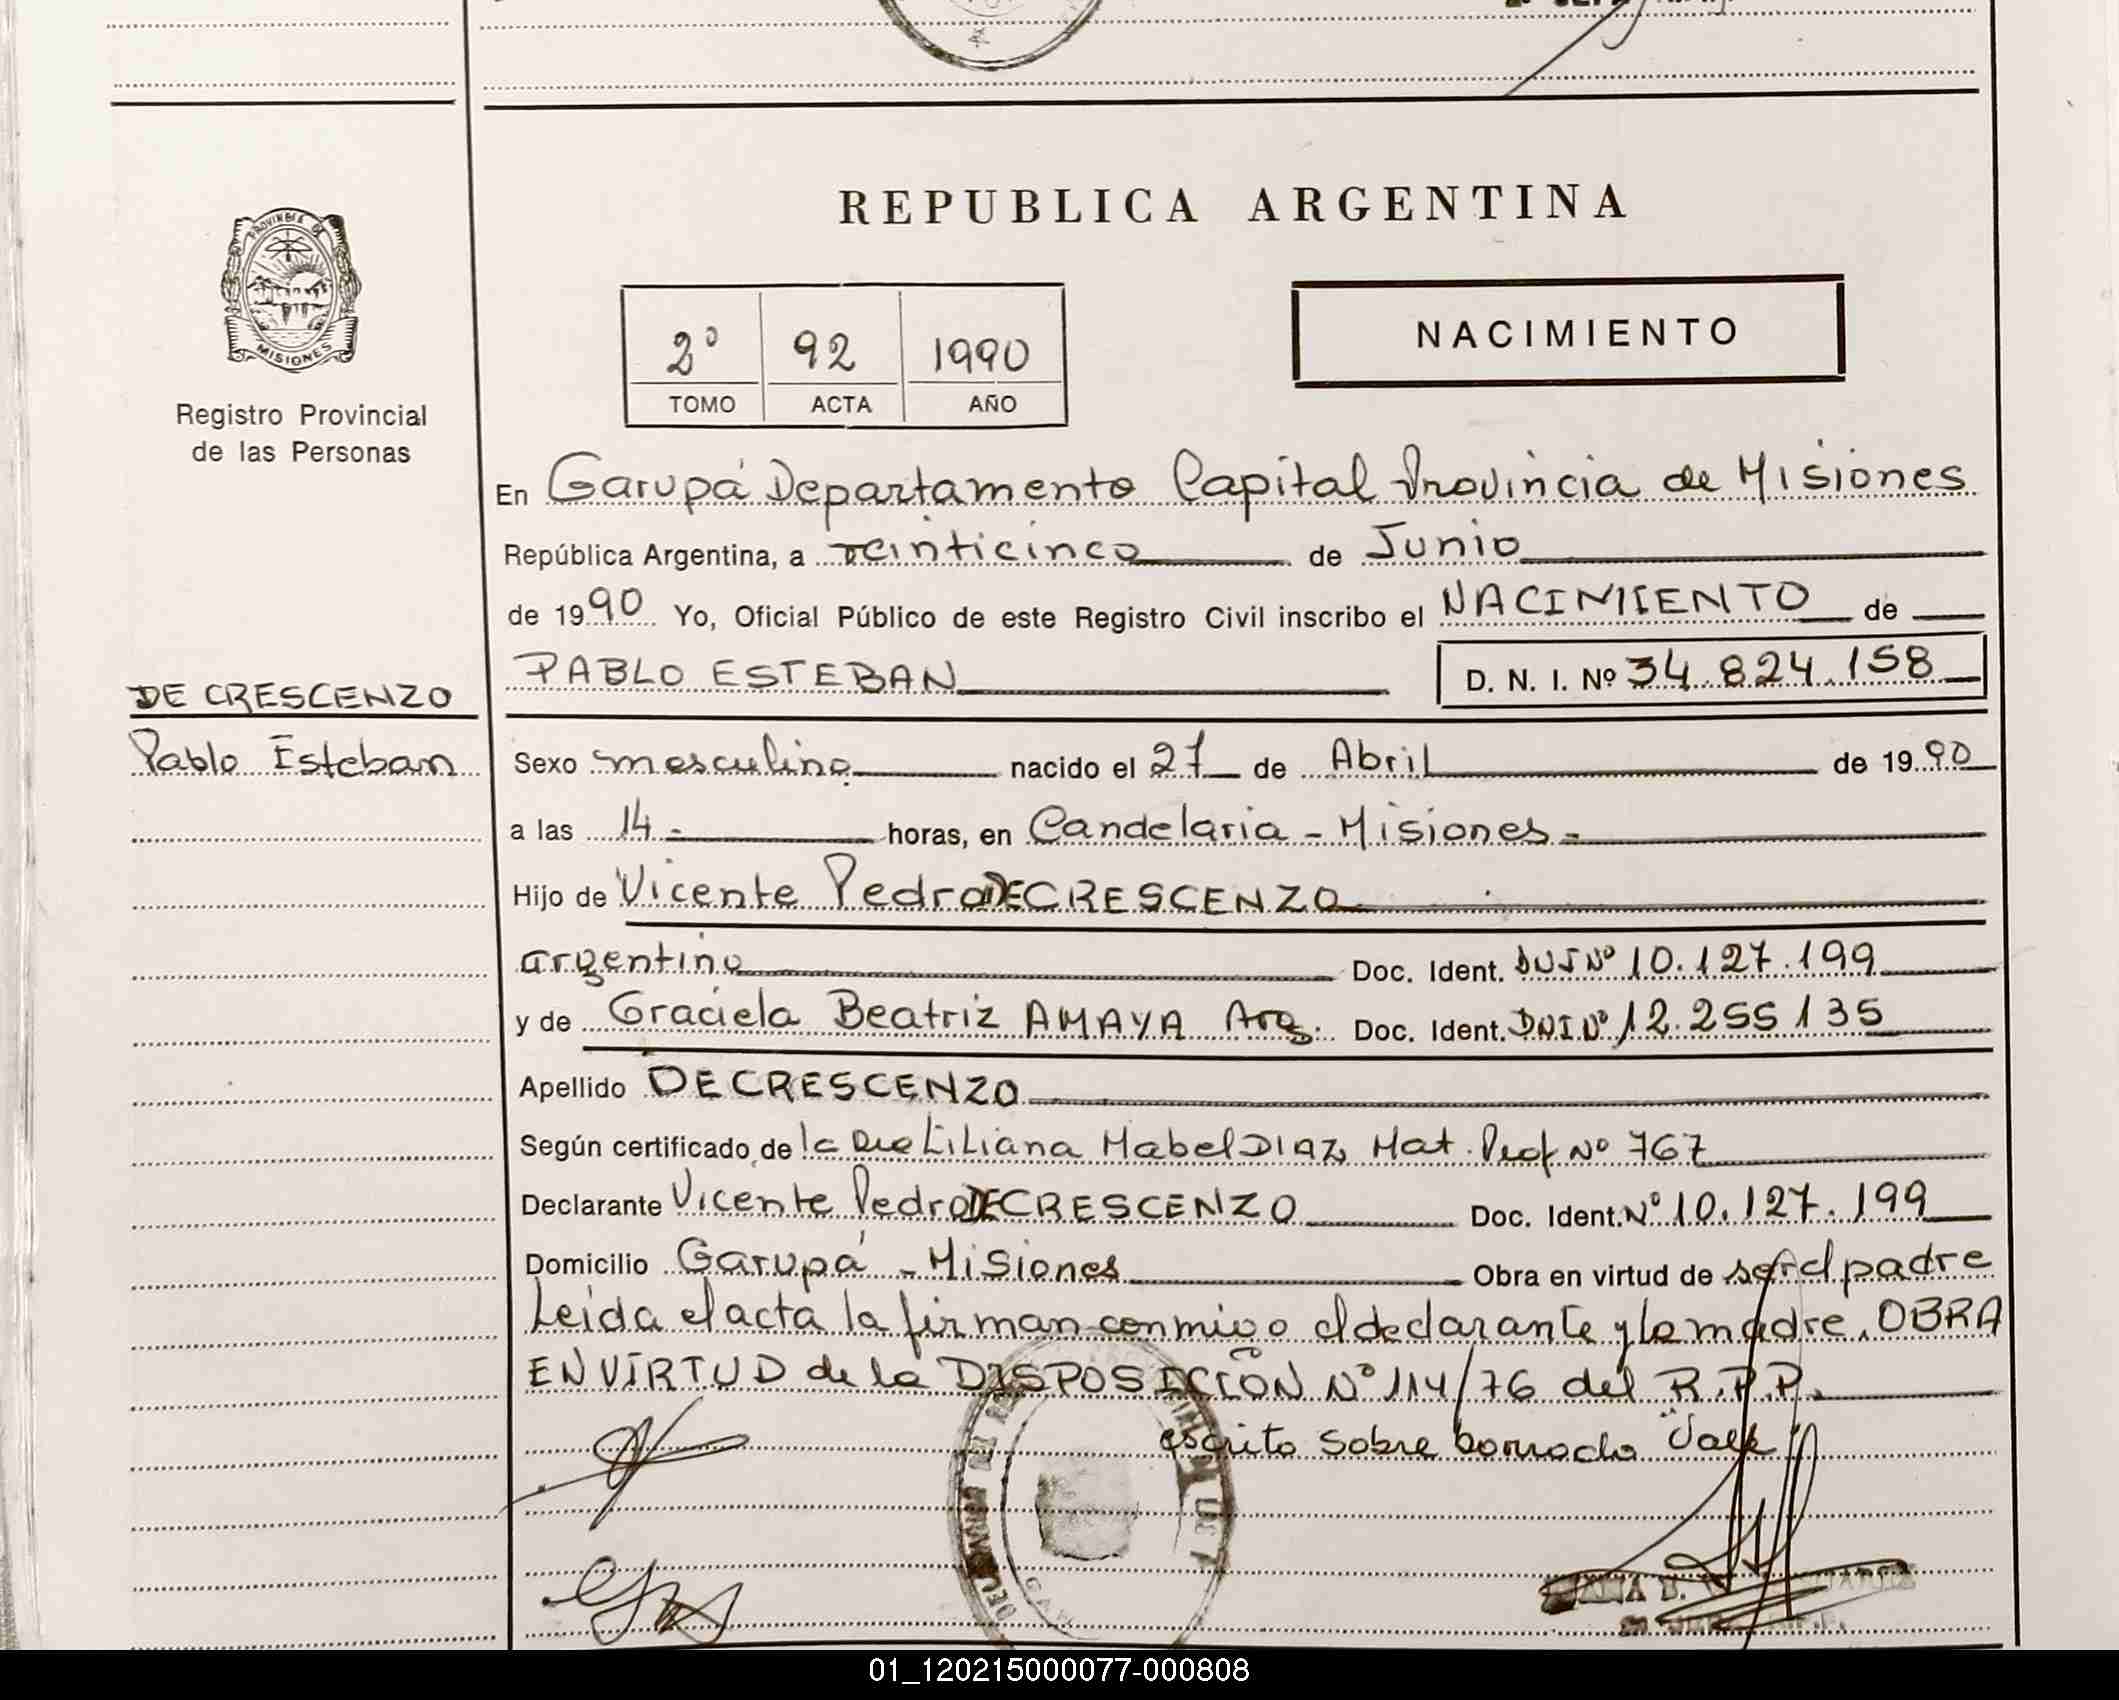 REPUBLICA ARGENTINA
PROVINCIA DE
MISIONES
Registro Provincial
de las Personas
2º 92 1990
TOMO ACTA AÑO
NACIMIENTO
En Garupá Departamento Capital Provincia de Misiones
República Argentina, a veinticinco de Junio
de 1990 Yo, Oficial Público de este Registro Civil inscribo el NACIMIENTO de
PABLO ESTEBAN D. N. I. Nº 34.824.158
DE CRESCENZO
Pablo Esteban
Sexo masculino nacido el 27 de Abril de 1990
a las 14.- horas, en Candelaria - Misiones.-
Hijo de Vicente Pedro DE CRESCENZO
argentino Doc. Ident. DNI Nº 10.127.199
y de Graciela Beatriz AMAYA Arg. Doc. Ident. DNI Nº 12.255135
Apellido DE CRESCENZO
Según certificado de la Liliana Mabel DIAZ Mat. Prof Nº 767
Declarante Vicente Pedro DE CRESCENZO Doc. Ident. Nº 10.127.199
Domicilio Garupá - Misiones Obra en virtud de ser el padre
Leída el acta la firman conmigo el declarante y la madre. OBRA
EN VIRTUD de la DISPOSICIÓN Nº 114/76 del R.P.P.
escrito sobre borrado Vale
01_120215000077-000808